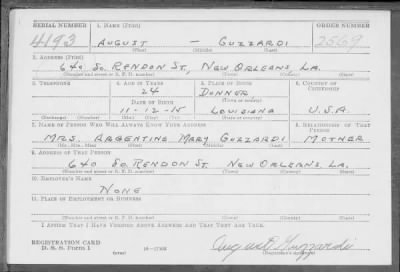 SERIAL NUMBER 1. NAME (Print) ORDER NUMBER
4193 AUGUST — GUZZARDI 2569
(First) (Middle) (Last)
2. ADDRESS (Print)
640 SO. RENDON ST., NEW ORLEANS, LA.
(Number and street or R. F. D. number) (Town) (County) (State)
3. TELEPHONE 4. AGE IN YEARS 5. PLACE OF BIRTH 6. COUNTRY OF CITIZENSHIP
24 DONNER
DATE OF BIRTH (Town or county)
11-12-15 LOUISIANA U.S.A.
(Exchange) (Number) (Mo.) (Day) (Yr.) (State or country)
7. NAME OF PERSON WHO WILL ALWAYS KNOW YOUR ADDRESS 8. RELATIONSHIP OF THAT PERSON
MRS. ARGENTINE MARY GUZZARDI MOTHER
(Mr., Mrs., Miss) (First) (Middle) (Last)
9. ADDRESS OF THAT PERSON
640 SO. RENDON ST. NEW ORLEANS, LA.
(Number and street or R. F. D. number) (Town) (County) (State)
10. EMPLOYER'S NAME
NONE
11. PLACE OF EMPLOYMENT OR BUSINESS
(Number and street or R. F. D. number) (Town) (County) (State)
I AFFIRM THAT I HAVE VERIFIED ABOVE ANSWERS AND THAT THEY ARE TRUE.
REGISTRATION CARD
D. S. S. Form 1 (over) 16—17105 August Guzzardi
(Registrant's signature)